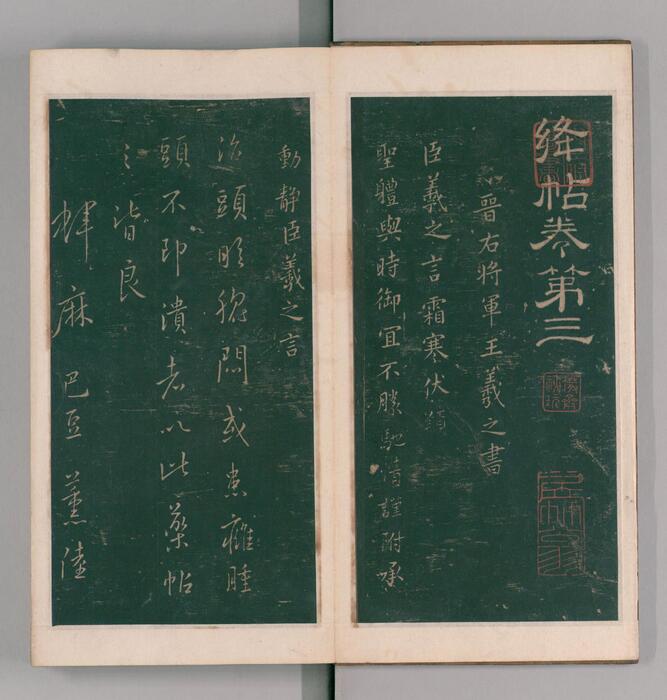 絳帖卷第三
晉右將軍王羲之書
臣羲之言霜寒伏
聖體與時御宜不勝馳情謹附承
動靜臣羲之言
治頭眩悶或患癰腫
頭不即潰者以此藥帖
之皆良
麻 巴豆 薰陸